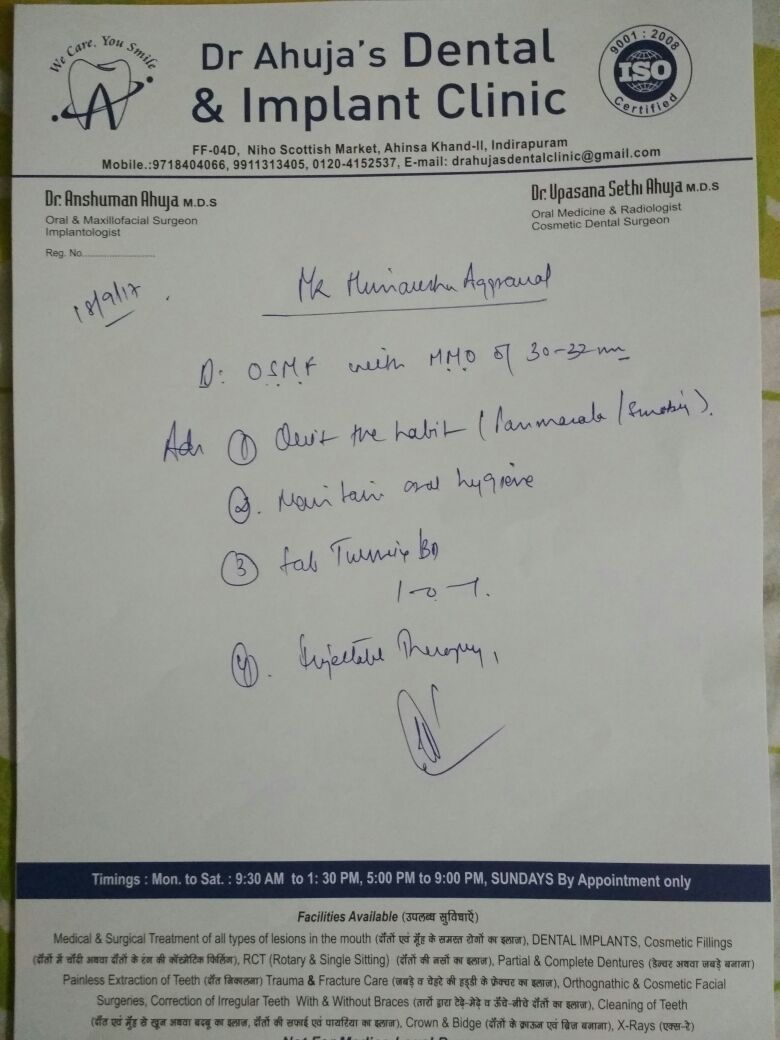 We Care, You Smile
A
Dr Ahuja's Dental
& Implant Clinic
9001 : 2008
ISO
Certified
FF-04D, Niho Scottish Market, Ahinsa Khand-II, Indirapuram
Mobile.:9718404066, 9911313405, 0120-4152537, E-mail: drahujasdentalclinic@gmail.com
Dr. Anshuman Ahuja M.D.S
Oral & Maxillofacial Surgeon
Implantologist
Reg. No.
Dr. Upasana Sethi Ahuja M.D.S
Oral Medicine & Radiologist
Cosmetic Dental Surgeon
18/9/17
Mr Aggrawal
D: OSMF with MMO of 30-32 mm
Adv ① Quit the habit (Panmasala / Smoking).
②. Maintain oral hygiene
③ Tab BD
1-0-1.
④. Injectable Therapy,
Timings : Mon. to Sat. : 9:30 AM to 1: 30 PM, 5:00 PM to 9:00 PM, SUNDAYS By Appointment only
Facilities Available (उपलब्ध सुविधाएँ)
Medical & Surgical Treatment of all types of lesions in the mouth (दाँतों एवं मुँह के समस्त रोगों का इलाज), DENTAL IMPLANTS, Cosmetic Fillings
(दाँतों में चाँदी अथवा दाँतों के रंग की कॉस्मेटिक फिलिंग), RCT (Rotary & Single Sitting) (दाँतों की नसों का इलाज), Partial & Complete Dentures (डेन्चर अथवा जबड़े बनाना)
Painless Extraction of Teeth (दाँत निकालना) Trauma & Fracture Care (जबड़े व चेहरे की हड्डी के फ्रेक्चर का इलाज), Orthognathic & Cosmetic Facial
Surgeries, Correction of Irregular Teeth With & Without Braces (तारों द्वारा टेढ़े-मेढ़े व ऊँचे-नीचे दाँतों का इलाज), Cleaning of Teeth
(दाँत एवं मुँह से खून अथवा बदबू का इलाज, दाँतों की सफाई एवं पायरिया का इलाज), Crown & Bidge (दाँतों के क्राऊन एवं ब्रिज बनाना), X-Rays (एक्स-रे)